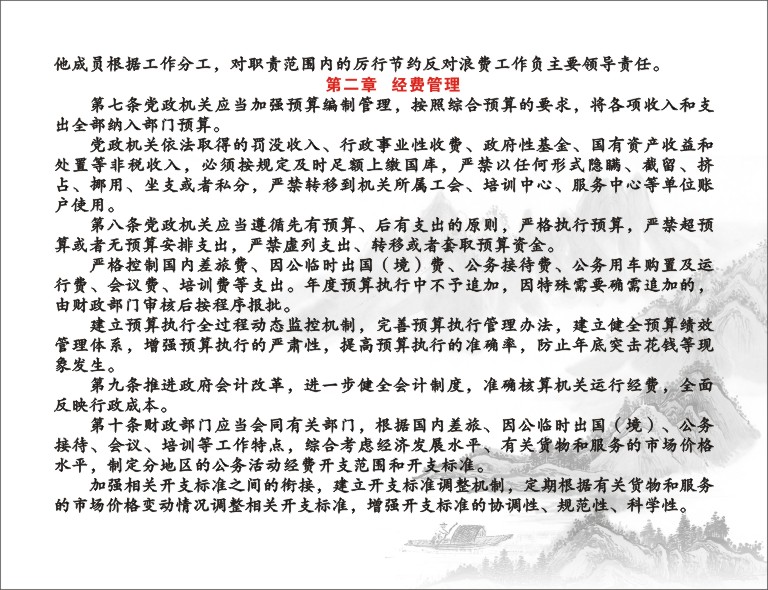 他成员根据工作分工，对职责范围内的厉行节约反对浪费工作负主要领导责任。
第二章 经费管理
第七条党政机关应当加强预算编制管理，按照综合预算的要求，将各项收入和支
出全部纳入部门预算。
党政机关依法取得的罚没收入、行政事业性收费、政府性基金、国有资产收益和
处置等非税收入，必须按规定及时足额上缴国库，严禁以任何形式隐瞒、截留、挤
占、挪用、坐支或者私分，严禁转移到机关所属工会、培训中心、服务中心等单位账
户使用。
第八条党政机关应当遵循先有预算、后有支出的原则，严格执行预算，严禁超预
算或者无预算安排支出，严禁虚列支出、转移或者套取预算资金。
严格控制国内差旅费、因公临时出国（境）费、公务接待费、公务用车购置及运
行费、会议费、培训费等支出。年度预算执行中不予追加，因特殊需要确需追加的，
由财政部门审核后按程序报批。
建立预算执行全过程动态监控机制，完善预算执行管理办法，建立健全预算绩效
管理体系，增强预算执行的严肃性，提高预算执行的准确率，防止年底突击花钱等现
象发生。
第九条推进政府会计改革，进一步健全会计制度，准确核算机关运行经费，全面
反映行政成本。
第十条财政部门应当会同有关部门，根据国内差旅、因公临时出国（境）、公务
接待、会议、培训等工作特点，综合考虑经济发展水平、有关货物和服务的市场价格
水平，制定分地区的公务活动经费开支范围和开支标准。
加强相关开支标准之间的衔接，建立开支标准调整机制，定期根据有关货物和服务
的市场价格变动情况调整相关开支标准，增强开支标准的协调性、规范性、科学性。